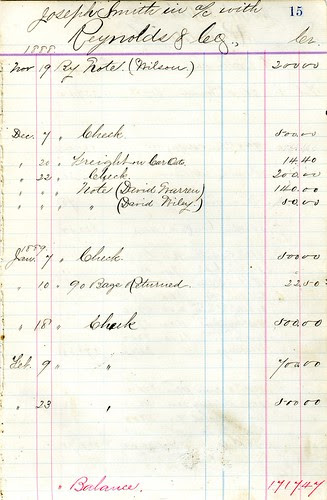 15
Joseph Smith in a/c with
Reynolds & Co. Cr.
1888
Nov 19 By Note (Wilson) 200.00
Dec. 7 " Check 50.00
" 20 " Freight on Car Oats 14.40
" 22 " Check 200.00
" " Note (David Warren) 140.00
" " " (David Wiley) 50.00
1889
Jan. 7 " Check 500.00
" 10 " 90 Bags Returned 22.50
" 18 " Check 500.00
Feb. 9 " "
" 23 "
" Balance. 1717.47